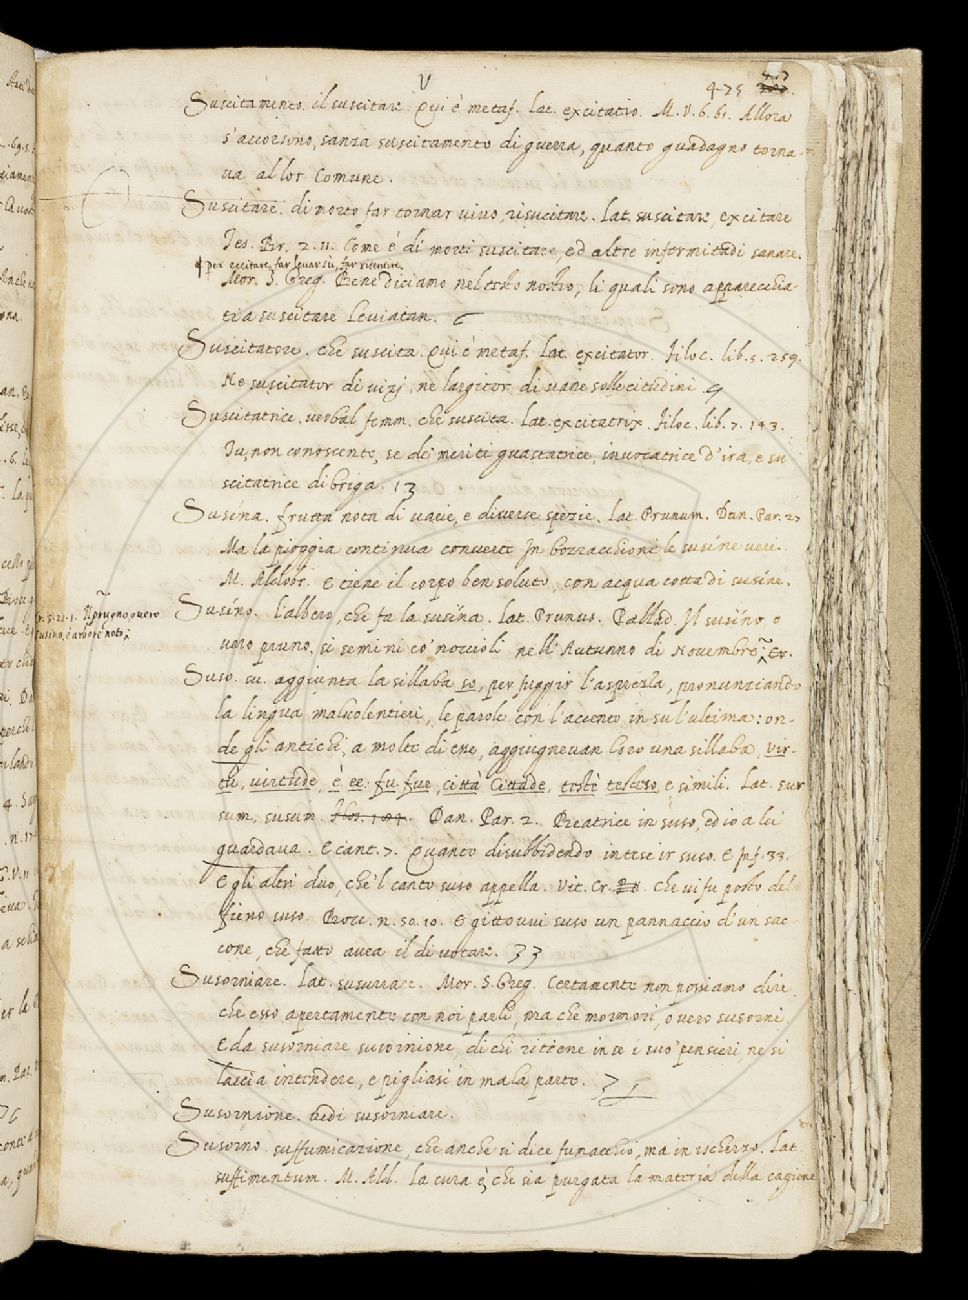 V
475
Suscitamento. il suscitare. Qui è metaf. Lat. excitatio. M. V. 6. 61. Allora
s'accorsono, sanza suscitamento di guerra, quanto guadagno torna-
va al lor Comune.
Suscitare. di morto far tornar vivo, risucitare. Lat. suscitare, excitare
Tes. Br. 2. 11. Come è di morti suscitare, ed altre infermitadi sanare.
per eccitare, far levar sù, far risentire.
Mor. S. Greg. Bene diciamo nel testo nostro, li quali sono apparecchia-
ti a suscitare Leviatan.
Suscitatore. che suscita. Qui è metaf. Lat. excitator. Filoc. lib. 5. 259.
Ne suscitator di vizj, ne largitor di vane sollecitudini
Suscitatrice. verbal femm. che suscita. Lat. excitatrix. Filoc. lib. 7. 143.
Tu, non conoscente, se de' meriti guastatrice, invocatrice d'ira, e su-
scitatrice di briga. 13
Susina. frutta nota di varie, e diverse spezie. Lat. Prunum. Dan. Par. 27
Ma la pioggia continua converte In bozzacchioni le susine vere.
M. Aldobr. E tiene il corpo ben soluto, con acqua cotta di susine.
Susino. l'albero, che fa la susina. Lat. Prunus. Pallad. Il susino o
Cr. 5. 21. 1. Il prugno, overo
susino, è arbore noto;
vero pruno, si semini co' noccioli nell'Autunno di Novembre. Cr.
Suso. su. aggiunta la sillaba so, per fuggir l'asprezza, pronunziando
la lingua malvolentieri, le parole con l'accento in su l'ultima: on-
de gli antichi, a molte di esse, aggiugnevan loro una sillaba, vir-
tù, virtude, è ee. fu fue, città cittade, testè testeso, e simili. Lat. sur
sum, susum. Dan. Par. 2. Beatrice in suso, ed io a lei
guardava. E cant. 7. Quanto disubbidendo intese ir suso. E Inf. 33.
E gli altri duo, che 'l canto suso appella. Vit. Cr. Che vi fu posto del
fieno suso. Bocc. n. 50. 10. E gittovvi suso un pannaccio d'un sac-
cone, che fatto avea il dì votare. 33
Susorniare. Lat. susurrare. Mor. S. Greg. Certamente non possiamo dire,
che esso apertamente con noi parli, ma che mormori, o vero susorni.
E da susorniare susornione, di chi ritiene in se i suo' pensieri ne si
lascia intendere, e pigliasi in mala parte. 7
Susornione. vedi susorniare.
Susorno. suffumicazione, che anche si dice funacchio, ma in ischerzo. Lat.
suffimentum. M. Ald. La cura è, che sia purgata la materia della cagione